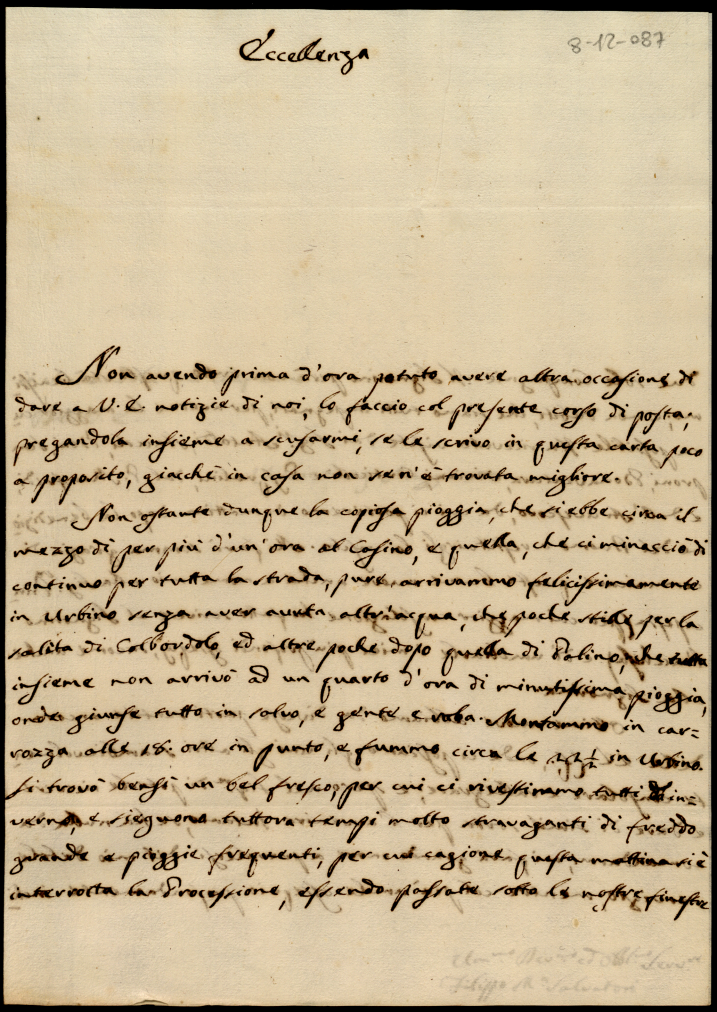 Eccellenza
8-12-087
Non avendo prima d'ora potuto avere altra occasione di
dare a V. E. notizie di noi, lo faccio col presente corso di posta,
pregandola insieme a scusarmi, se le scrivo in questa carta poco
a proposito, giacchè in casa non sen'è trovata migliore.
Non ostante dunque la copiosa pioggia, che si ebbe circa il
mezzo di per più d'un'ora al Casino, e quella, che ci minacciò di
continuo per tutta la strada, pure arrivammo felicissimamente
in Urbino senza aver avuta altr'acqua, che poche stille per la
salita di Colbordolo, ed altre poche dopo quella di Talino, che tutta
insieme non arrivò ad un quarto d'ora di minutissima pioggia,
onde giunse tutto in salvo, e gente e roba. Montammo in car=
rozza alle 18. ore in punto, e fummo circa le 23½ in Urbino.
Si trovò bensì un bel fresco, per cui ci rivestimmo tutti d'in=
verno, e sieguono tuttora tempi molto stravaganti di freddo
grande e pioggie frequenti, per cui cagione questa mattina si è
interrotta la Processione, essendo passate sotto le nostre finestre
Filippo M.ª Salvatori